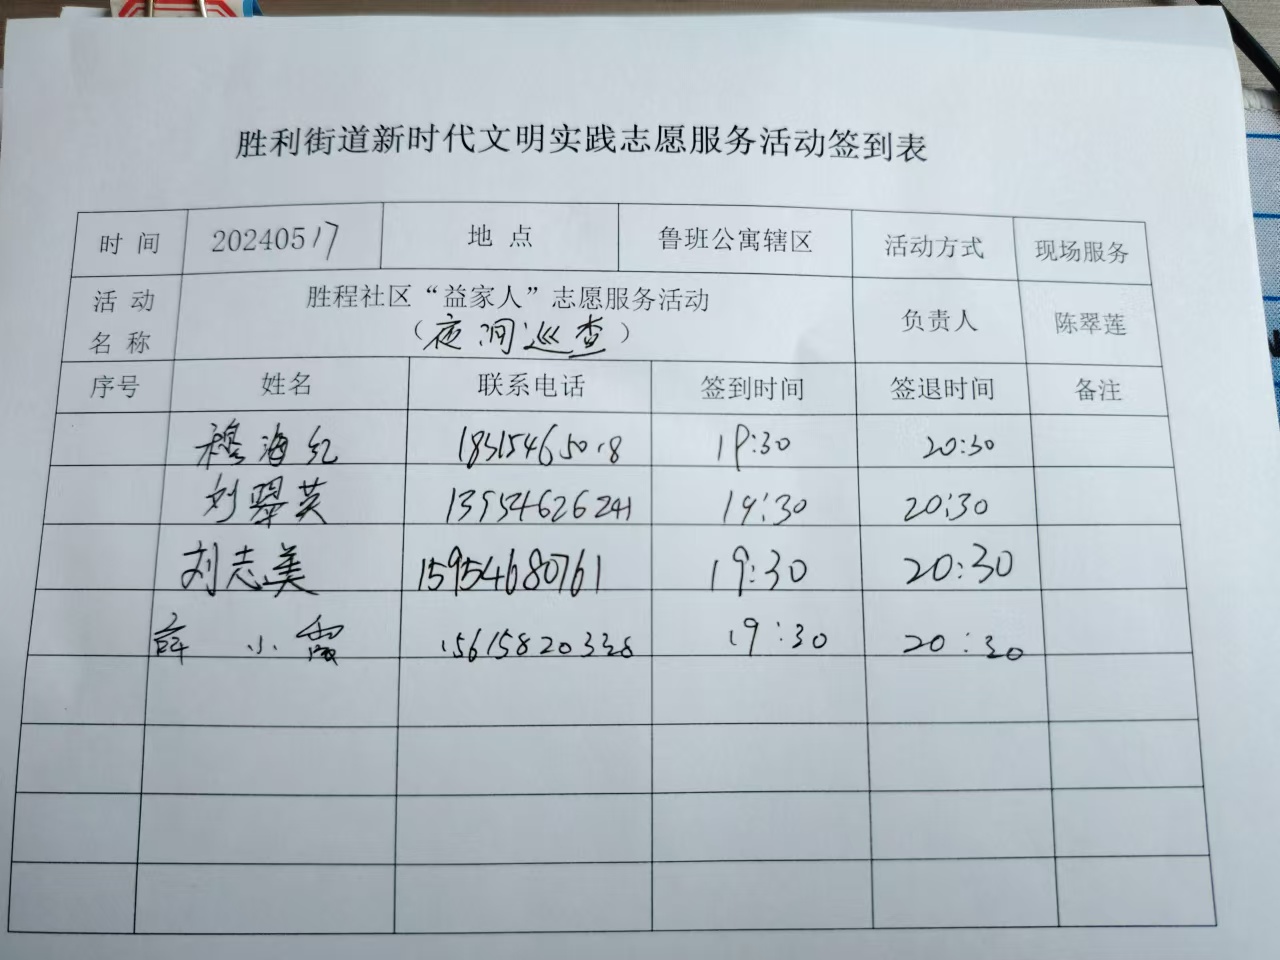 胜利街道新时代文明实践志愿服务活动签到表
时 间 20240517 地 点 鲁班公寓辖区 活动方式 现场服务
活 动 名 称 胜程社区“益家人”志愿服务活动 负责人 陈翠莲
（夜间巡查）
序号 姓名 联系电话 签到时间 签退时间 备注
穆海红 18315465018 19:30 20:30
刘翠英 13954626241 19:30 20:30
刘志美 15954680761 19:30 20:30
薛小霞 15615820338 19:30 20:30